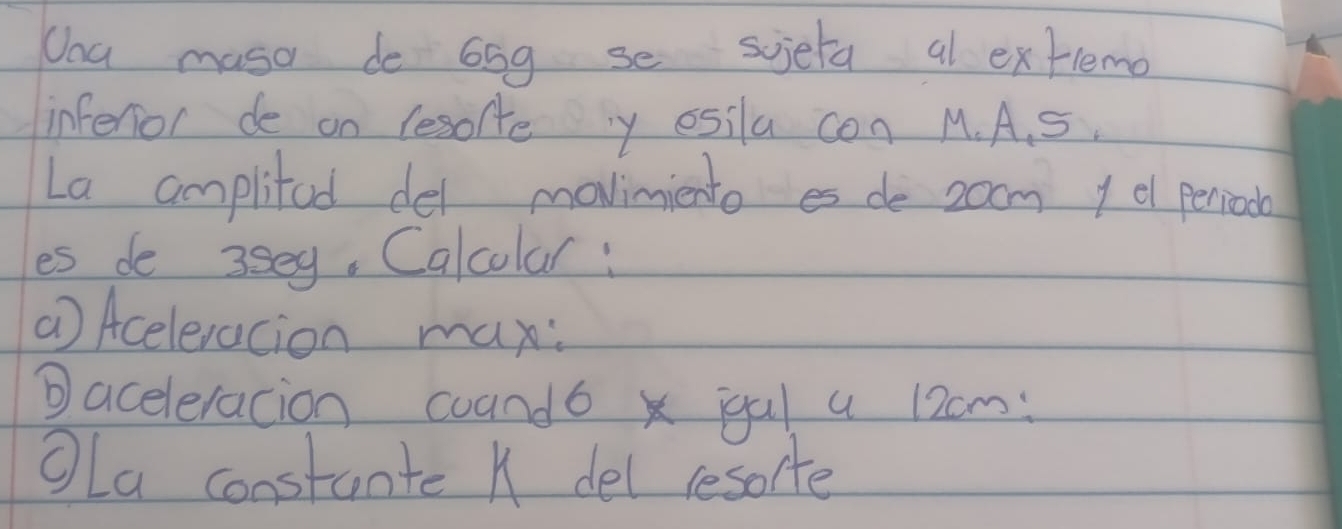 Una masa de 65g se sujeta al extremo
inferior de un resorte y osila con M.A.S.
La amplitud del movimiento es de 20cm y el periodo
es de 3seg. Calcular:
a) Aceleracion max:
b) aceleracion cuando x igal a 12cm:
c) La constante K del resorte